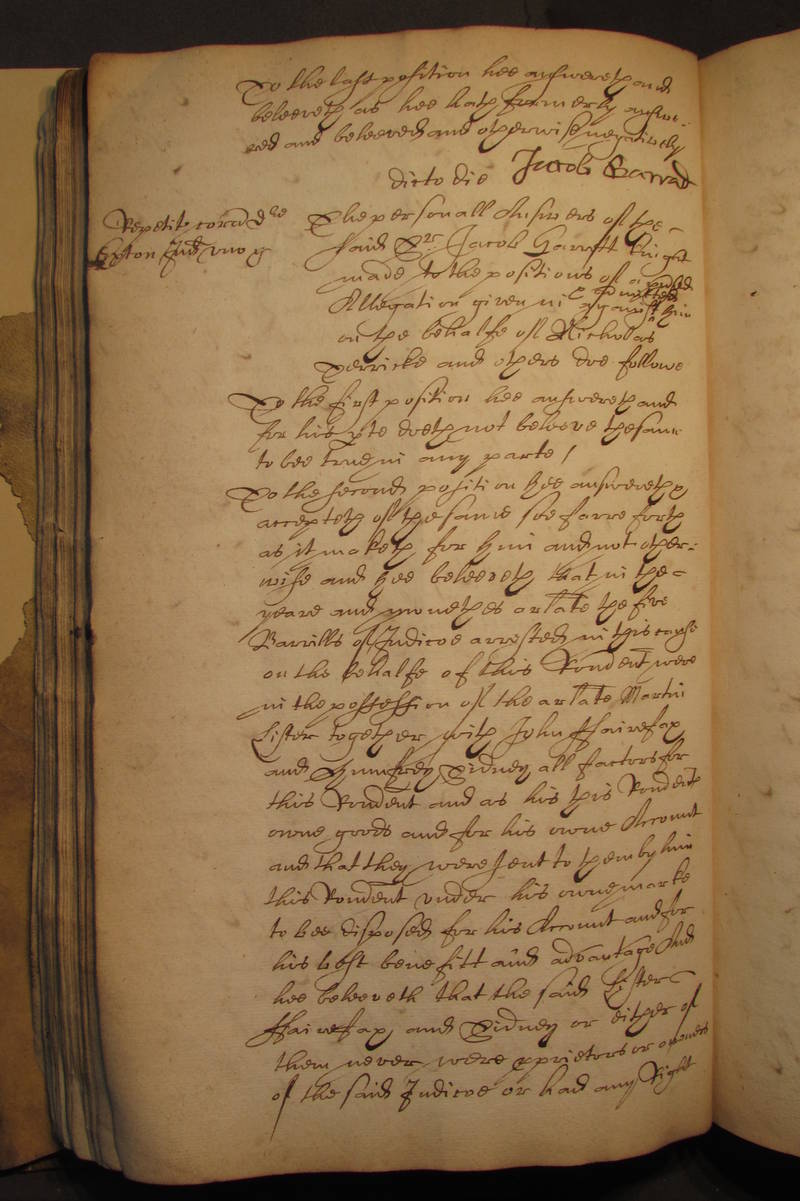 To the last position hee answereth and
beleeveth as hee hath formerly answe-
red and beleeved and otherwise negatively
dicto die Jacob Garrad
Repetit coram d
Exton Jud
The personall Answers of the
said Sr. Jacob Garrett knight
made to the positions of a
Allegation given in &amp; admitted against him
on the behalfe of Nicholas
Herricke and others doe followe
To the first position hee answereth and
for his pte doeth not beleeve the same
to bee true in any parte /
To the second position hee answereth &amp;
accepteth of the same soe farre forth
as it maketh for him and not other-
wise and hee beleeveth that in the
yeare and monethes arlate the five
Barrills of Indicoe arrested in this cause
on the behalfe of this Rondent were
in the possession of the arlate Martin
Lister together with John ffairefax
and Humfrey Sidney all factors for
this Rondent and as his this Rondents
owne goods and for his owne Account
and that they were sent to them by him
this Rondent under his owne marke
to bee disposed for his Account and for
his best benefitt and advantage And
hee beleeveth that the said Lister
ffairefax and Sidney or either of
them never were pprietors or owners
of the said Indicoe or had any Right